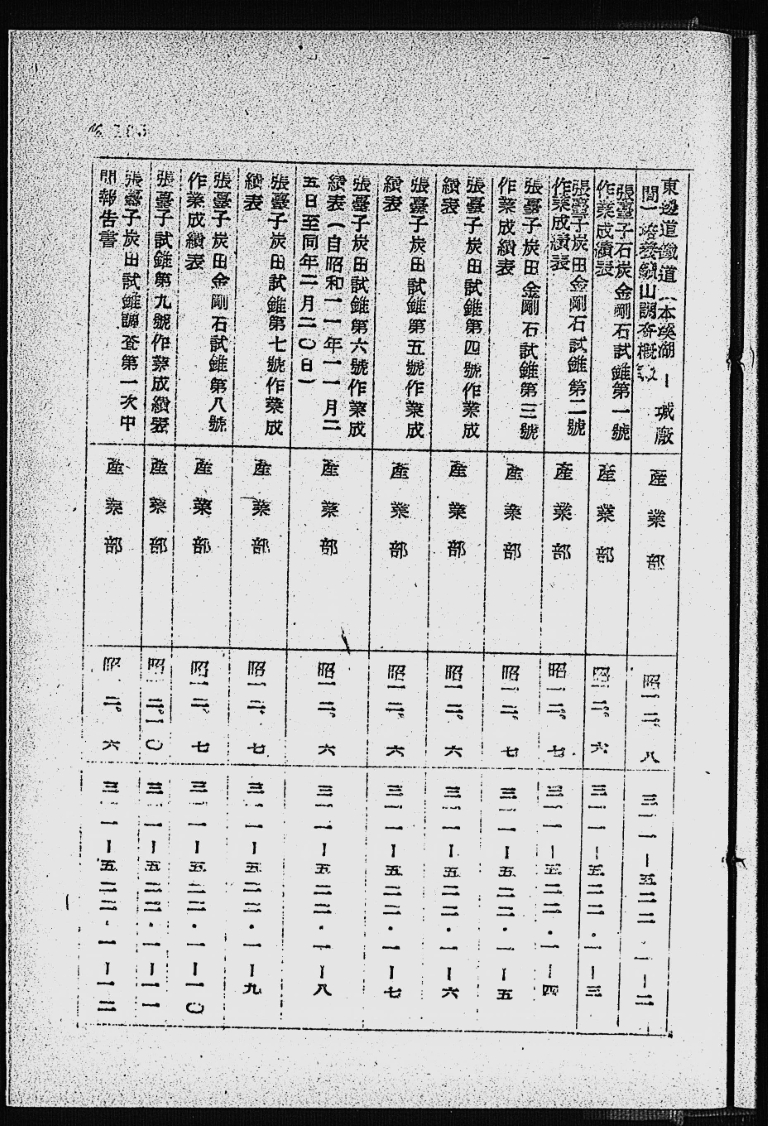 東邊道鐵道（本溪湖ー城廠
間）培養鑛山調査概
產業部
昭一二、八
三一一ー五二二・一ー二
張臺子石炭金剛石試錐第一號
作業成績表
產業部
昭一二、六
三一一ー五二二・一ー三
張臺子炭田金剛石試錐第二號
作業成績表
產業部
昭一二、七
三一一ー五二二・一ー四
張臺子炭田金剛石試錐第三號
作業成績表
產業部
昭一二、七
三一一ー五二二・一ー五
張臺子炭田試錐第四號作業成
績表
產業部
昭一二、六
三一一ー五二二・一ー六
張臺子炭田試錐第五號作業成
績表
產業部
昭一二、六
三一一ー五二二・一ー七
張臺子炭田試錐第六號作業成
績表（自昭和一一年一一月二
五日至同年二月二〇日）
產業部
昭一二、六
三一一ー五二二・一ー八
張臺子炭田試錐第七號作業成
績表
產業部
昭一二、七
三一一ー五二二・一ー九
張臺子炭田金剛石試錐第八號
作業成績表
產業部
昭一二、七
三一一ー五二二・一ー一〇
張臺子試錐第九號作業成績表
產業部
昭一二、一〇
三一一ー五二二・一ー一一
張臺子炭田試錐調査第一次中
間報告書
產業部
昭一二、六
三一一ー五二二・一ー一二